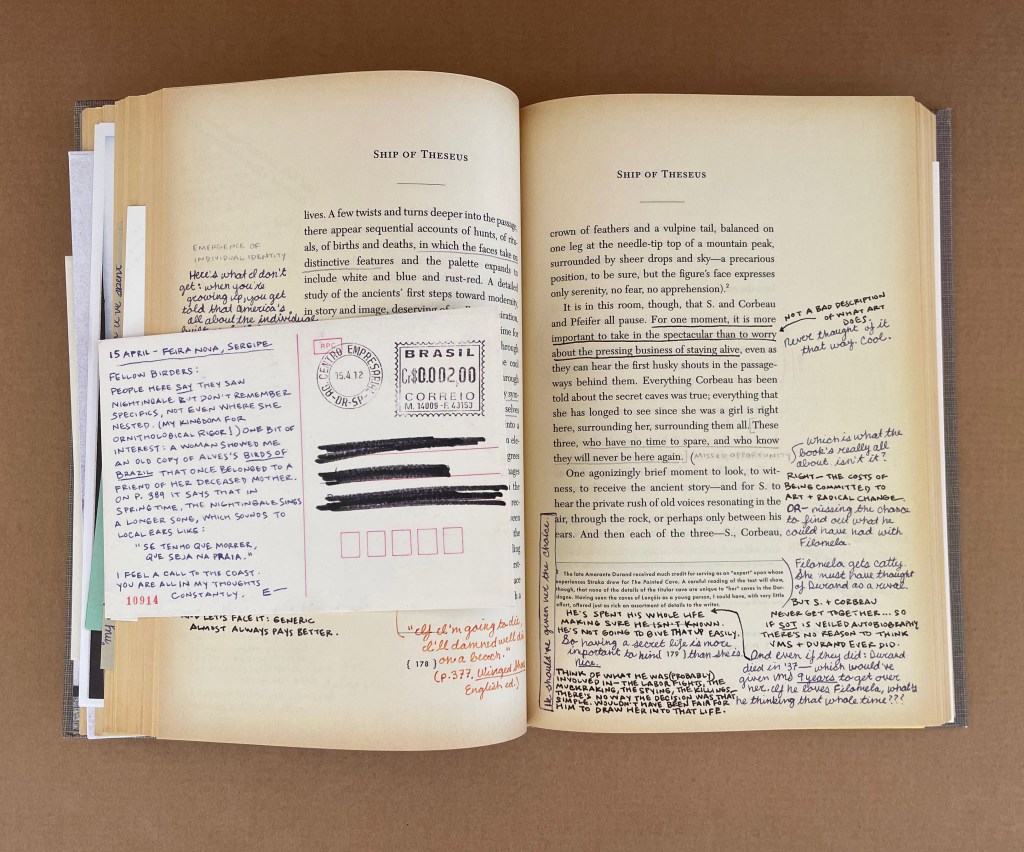 SHIP OF THESEUS
lives. A few twists and turns deeper into the passage,
there appear sequential accounts of hunts, of ritu-
als, of births and deaths, in which the faces take on
distinctive features and the palette expands to
include white and blue and rust-red. A detailed
study of the ancients' first steps toward modernity
in story and image, deserving of
EMERGENCE OF
INDIVIDUAL IDENTITY
Here's what I don't
get: when you're
growing up, you get
told that America's
all about the individual
15 APRIL - FEIRA NOVA, SERGIPE
FELLOW BIRDERS:
PEOPLE HERE SAY THEY SAW
NIGHTINGALE BUT DON'T REMEMBER
SPECIFICS, NOT EVEN WHERE SHE
NESTED. (MY KINGDOM FOR
ORNITHOLOGICAL RIGOR!) ONE BIT OF
INTEREST: A WOMAN SHOWED ME
AN OLD COPY OF ALVES'S BIRDS OF
BRAZIL THAT ONCE BELONGED TO A
FRIEND OF HER DECEASED MOTHER.
ON P. 389 IT SAYS THAT IN
SPRINGTIME, THE NIGHTINGALE SINGS
A LONGER SONG, WHICH SOUNDS TO
LOCAL EARS LIKE:
"SE TENHO QUE MORRER,
QUE SEJA NA PRAIA."
I FEEL A CALL TO THE COAST.
YOU ARE ALL IN MY THOUGHTS
CONSTANTLY. E—
10914
RPC
CENTRO EMPRESARI
15.4.12
BR-DR-SP
BRASIL
Cr$0.002,00
CORREIO
M. 14009 - F. 43153
LET'S FACE IT: GENERIC
ALMOST ALWAYS PAYS BETTER.
"If I'm going to die,
I'll damned well die
on a beach."
(p. 377, Winged
English ed.)
{ 178 }
SHIP OF THESEUS
crown of feathers and a vulpine tail, balanced on
one leg at the needle-tip top of a mountain peak,
surrounded by sheer drops and sky—a precarious
position, to be sure, but the figure's face expresses
only serenity, no fear, no apprehension).²
It is in this room, though, that S. and Corbeau
and Pfeifer all pause. For one moment, it is more
important to take in the spectacular than to worry
about the pressing business of staying alive, even as
they can hear the first husky shouts in the passage-
ways behind them. Everything Corbeau has been
told about the secret caves was true; everything that
she has longed to see since she was a girl is right
here, surrounding her, surrounding them all. These
three, who have no time to spare, and who know
they will never be here again.
(MISSED OPPORTUNITY)
One agonizingly brief moment to look, to wit-
ness, to receive the ancient story—and for S. to
hear the private rush of old voices resonating in the
air, through the rock, or perhaps only between his
ears. And then each of the three—S., Corbeau,
NOT A BAD DESCRIPTION
OF WHAT ART
DOES.
Never thought of it
that way. Cool.
Which is what the
book's really all
about, isn't it?
RIGHT — THE COSTS OF
BEING COMMITTED TO
ART + RADICAL CHANGE
OR — missing the chance
to find out what he
could have had with
Filomela.
The late Amarante Durand received much credit for serving as an "expert" upon whose
experiences Straka drew for The Painted Cave. A careful reading of the text will show,
though, that none of the details of the titular cave are unique to "her" caves in the Dor-
dogne. Having seen the caves of Lengéis as a young person, I could have, with very little
effort, offered just as rich an assortment of details to the writer.
Filomela gets catty.
She must have thought
of Durand as a rival.
BUT S. + CORBEAU
NEVER GET TOGETHER... SO
IF SOT IS VEILED AUTOBIOGRAPHY
THERE'S NO REASON TO THINK
VMS + DURAND EVER DID.
And even if they did: Durand
died in '37 — which would've
given VMS 9 years to get over
her. If he loves Filomela, what's
he thinking that whole time???
He should've given her the choice.
HE'S SPENT HIS WHOLE LIFE
MAKING SURE HE ISN'T KNOWN.
HE'S NOT GOING TO GIVE THAT UP EASILY.
So having a secret life is more
important to him than she is.
Nice.
179
THINK OF WHAT HE WAS (PROBABLY)
INVOLVED IN — THE LABOR FIGHTS, THE
MUCKRAKING, THE SPYING, THE KILLINGS—
THERE'S NO WAY THE DECISION WAS THAT
SIMPLE. WOULDN'T HAVE BEEN FAIR FOR
HIM TO DRAW HER INTO THAT LIFE.